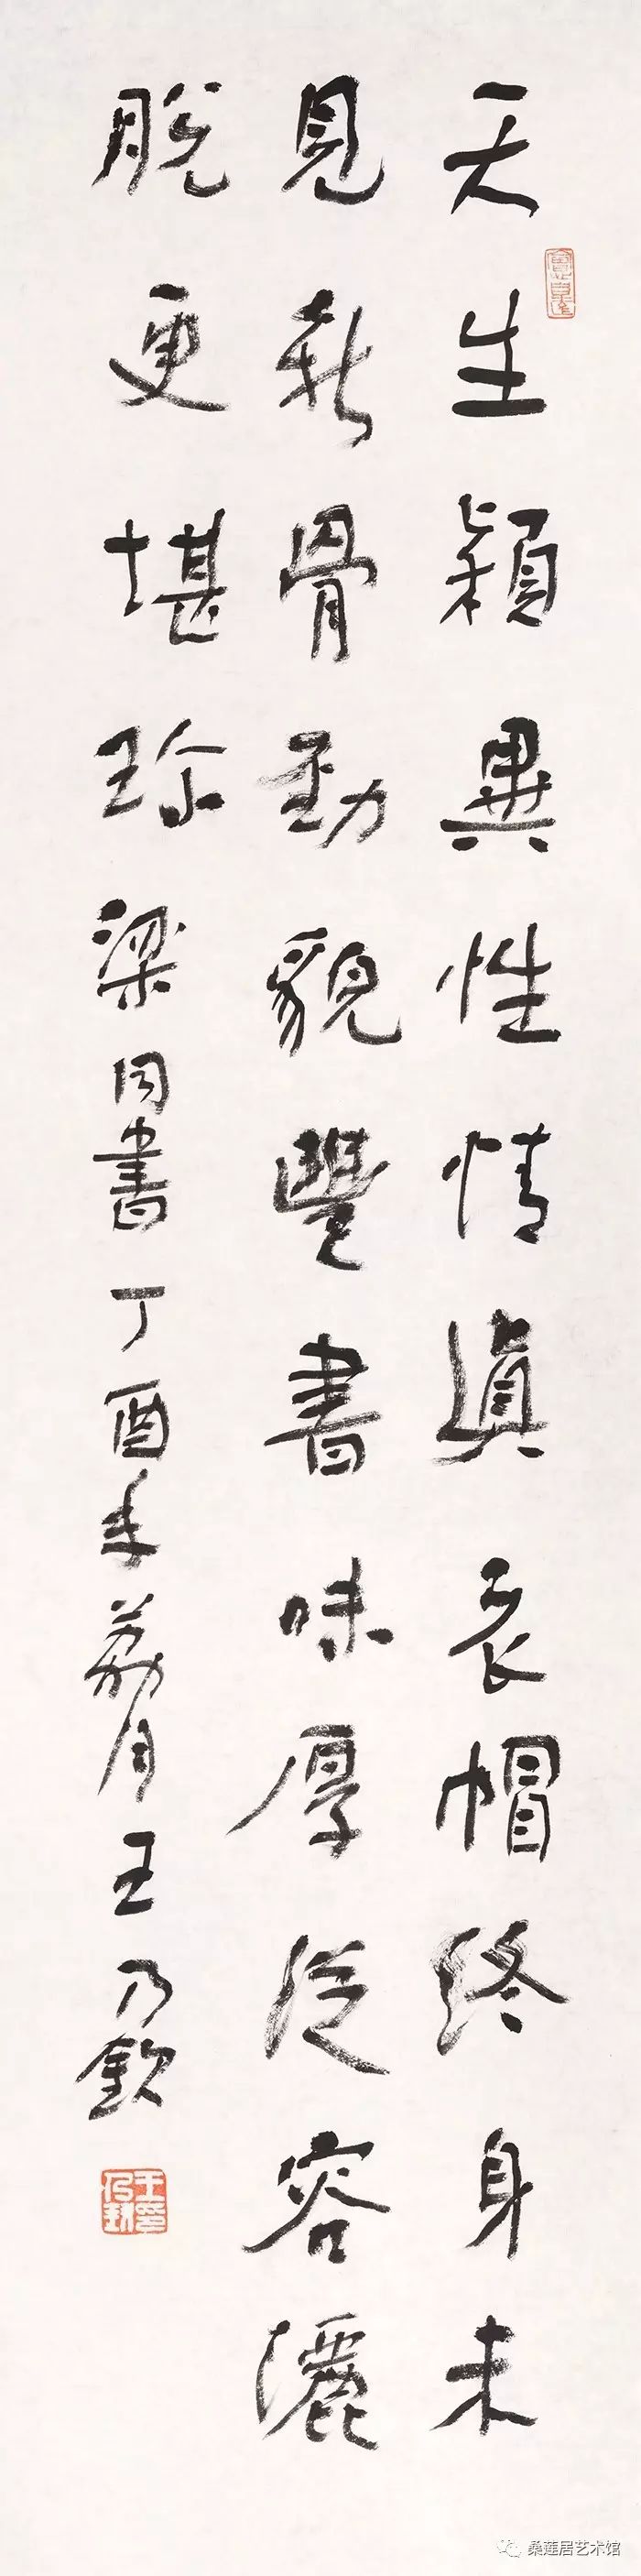 天生穎異性情真衣帽終身未
見新骨勁貌豐書味厚從容灑
脫更堪珍梁同書丁酉年荔月王乃欽
王乃欽印
桑莲居艺术馆